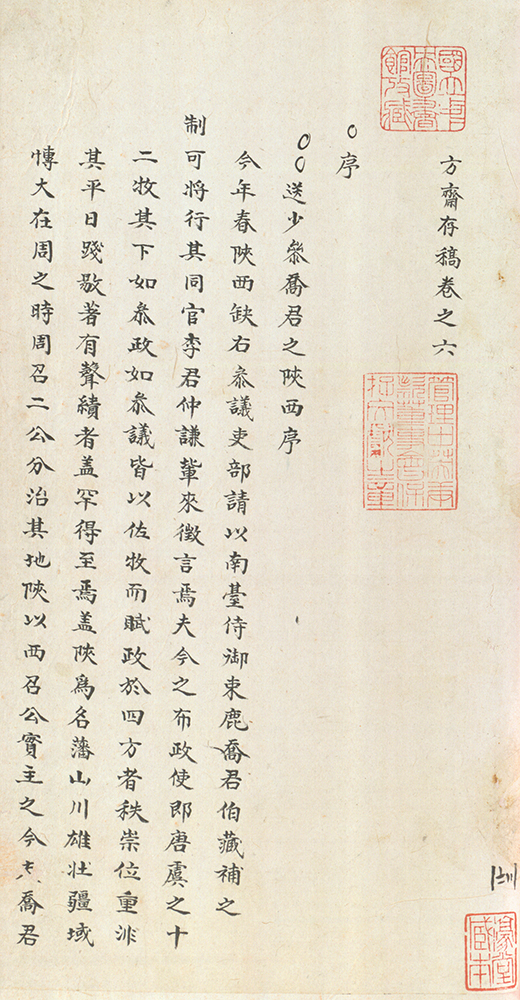 國立中央圖書館收藏
方齋存稿卷之六
管理中英庚款董事會保存文獻之章
序
送少叅喬君之陝西序
今年春陝西缺右叅議吏部請以南臺侍御東鹿喬君伯藏補之
制可將行其同官李君仲謙軰來徵言焉夫今之布政使即唐虞之十
二牧其下如叅政如叅議皆以佐牧而賦政於四方者秩崇位重非
其平日踐敭著有聲績者盖罕得至焉盖陝爲名藩山川雄壯疆域
博大在周之時周召二公分治其地陝以西召公實主之今喬君